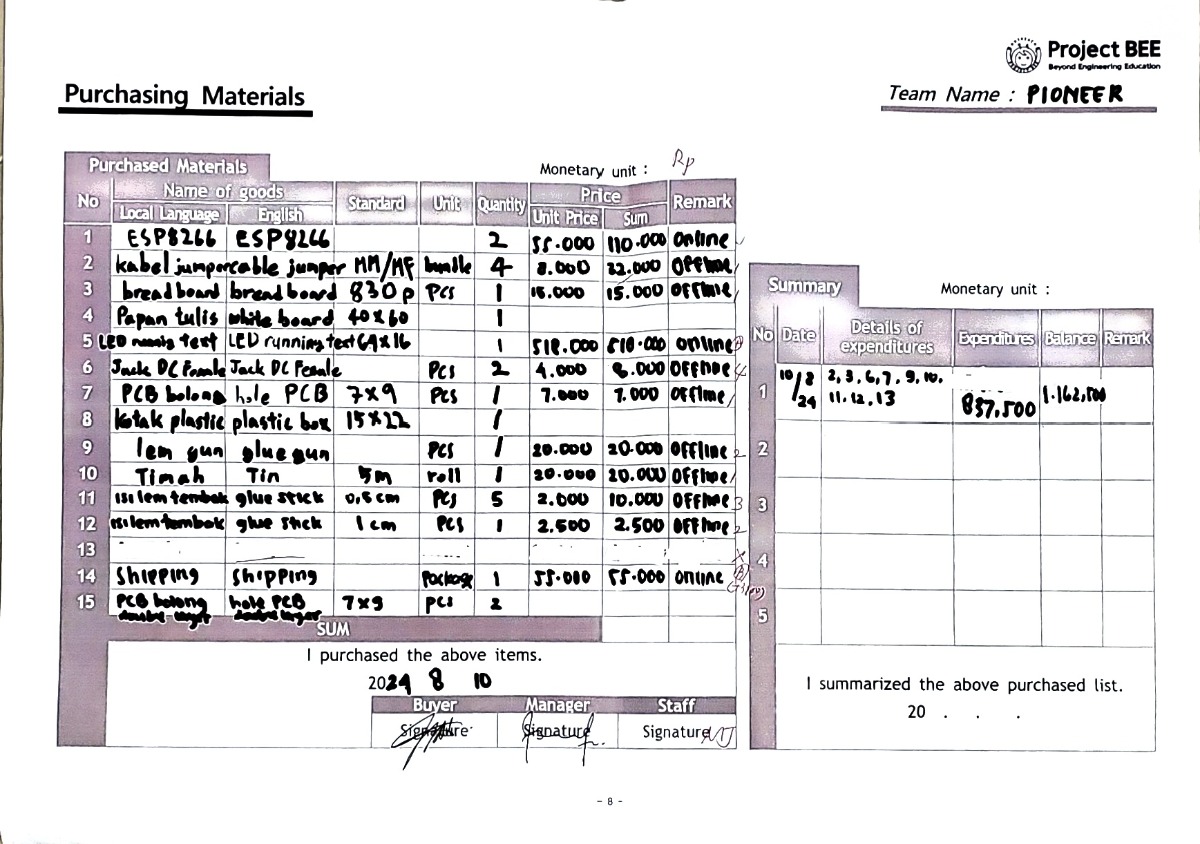 Project BEE
Beyond Engineering Education
Purchasing Materials
Team Name : PIONEER
Purchased Materials
Monetary unit : Rp
No Name of goods Standard Unit Quantity Price Remark
Local Language English Unit Price Sum
1 ESP8266 ESP8266 2 55.000 110.000 Online
2 kabel jumper cable jumper MM/MF bundle 4 8.000 32.000 Offline
3 breadboard breadboard 830p Pcs 1 15.000 15.000 Offline
4 Papan tulis white board 40x60 1
5 LED running text LED running text 64x16 1 510.000 510.000 online
6 Jack DC Female Jack DC Female Pcs 2 4.000 8.000 Offline
7 PCB bolong hole PCB 7x9 Pcs 1 7.000 7.000 Offline
8 kotak plastic plastic box 15x22 1
9 lem gun glue gun Pcs 1 20.000 20.000 Offline
10 Timah Tin 5m roll 1 20.000 20.000 Offline
11 isi lem tembak glue stick 0,5cm Pcs 5 2.000 10.000 Offline
12 isi lem tembak glue stick 1cm Pcs 1 2.500 2.500 Offline
13
14 Shipping Shipping Package 1 55.000 55.000 online
15 PCB bolong hole PCB 7x9 pcs 2
double layer double layer
SUM
I purchased the above items.
2024 8 10
Buyer Manager Staff
Signature Signature Signature
Summary
Monetary unit :
No Date Details of expenditures Expenditures Balance Remark
1 10/8 24 2, 3, 6, 7, 9, 10,
11, 12, 13 837,500 1.162,500
2
3
4
5
I summarized the above purchased list.
20 . . .
- 8 -